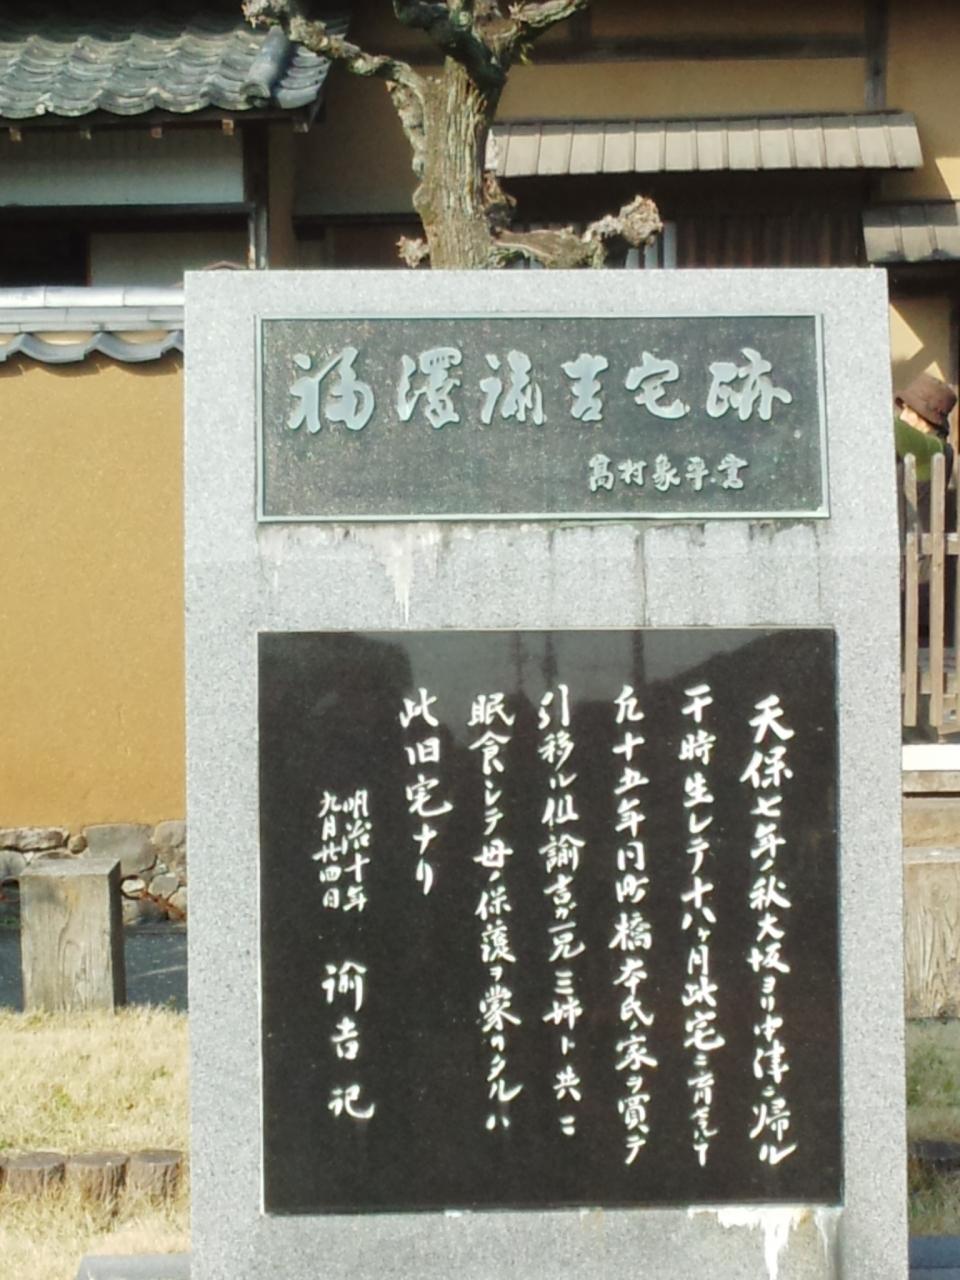 福澤諭吉宅跡
高村象平書
天保七年ノ秋大坂ヨリ中津ニ帰ル
干時生レテ十八ヶ月此宅ニ育セラルヽ丁
凡十五年同町橋本氏ノ家ヲ買テ
引移ル但諭吉ガ一兄三姉ト共ニ
眠食シテ母ノ保護ヲ蒙リタルハ
此旧宅ナリ
明治十年
九月廿四日
諭吉記